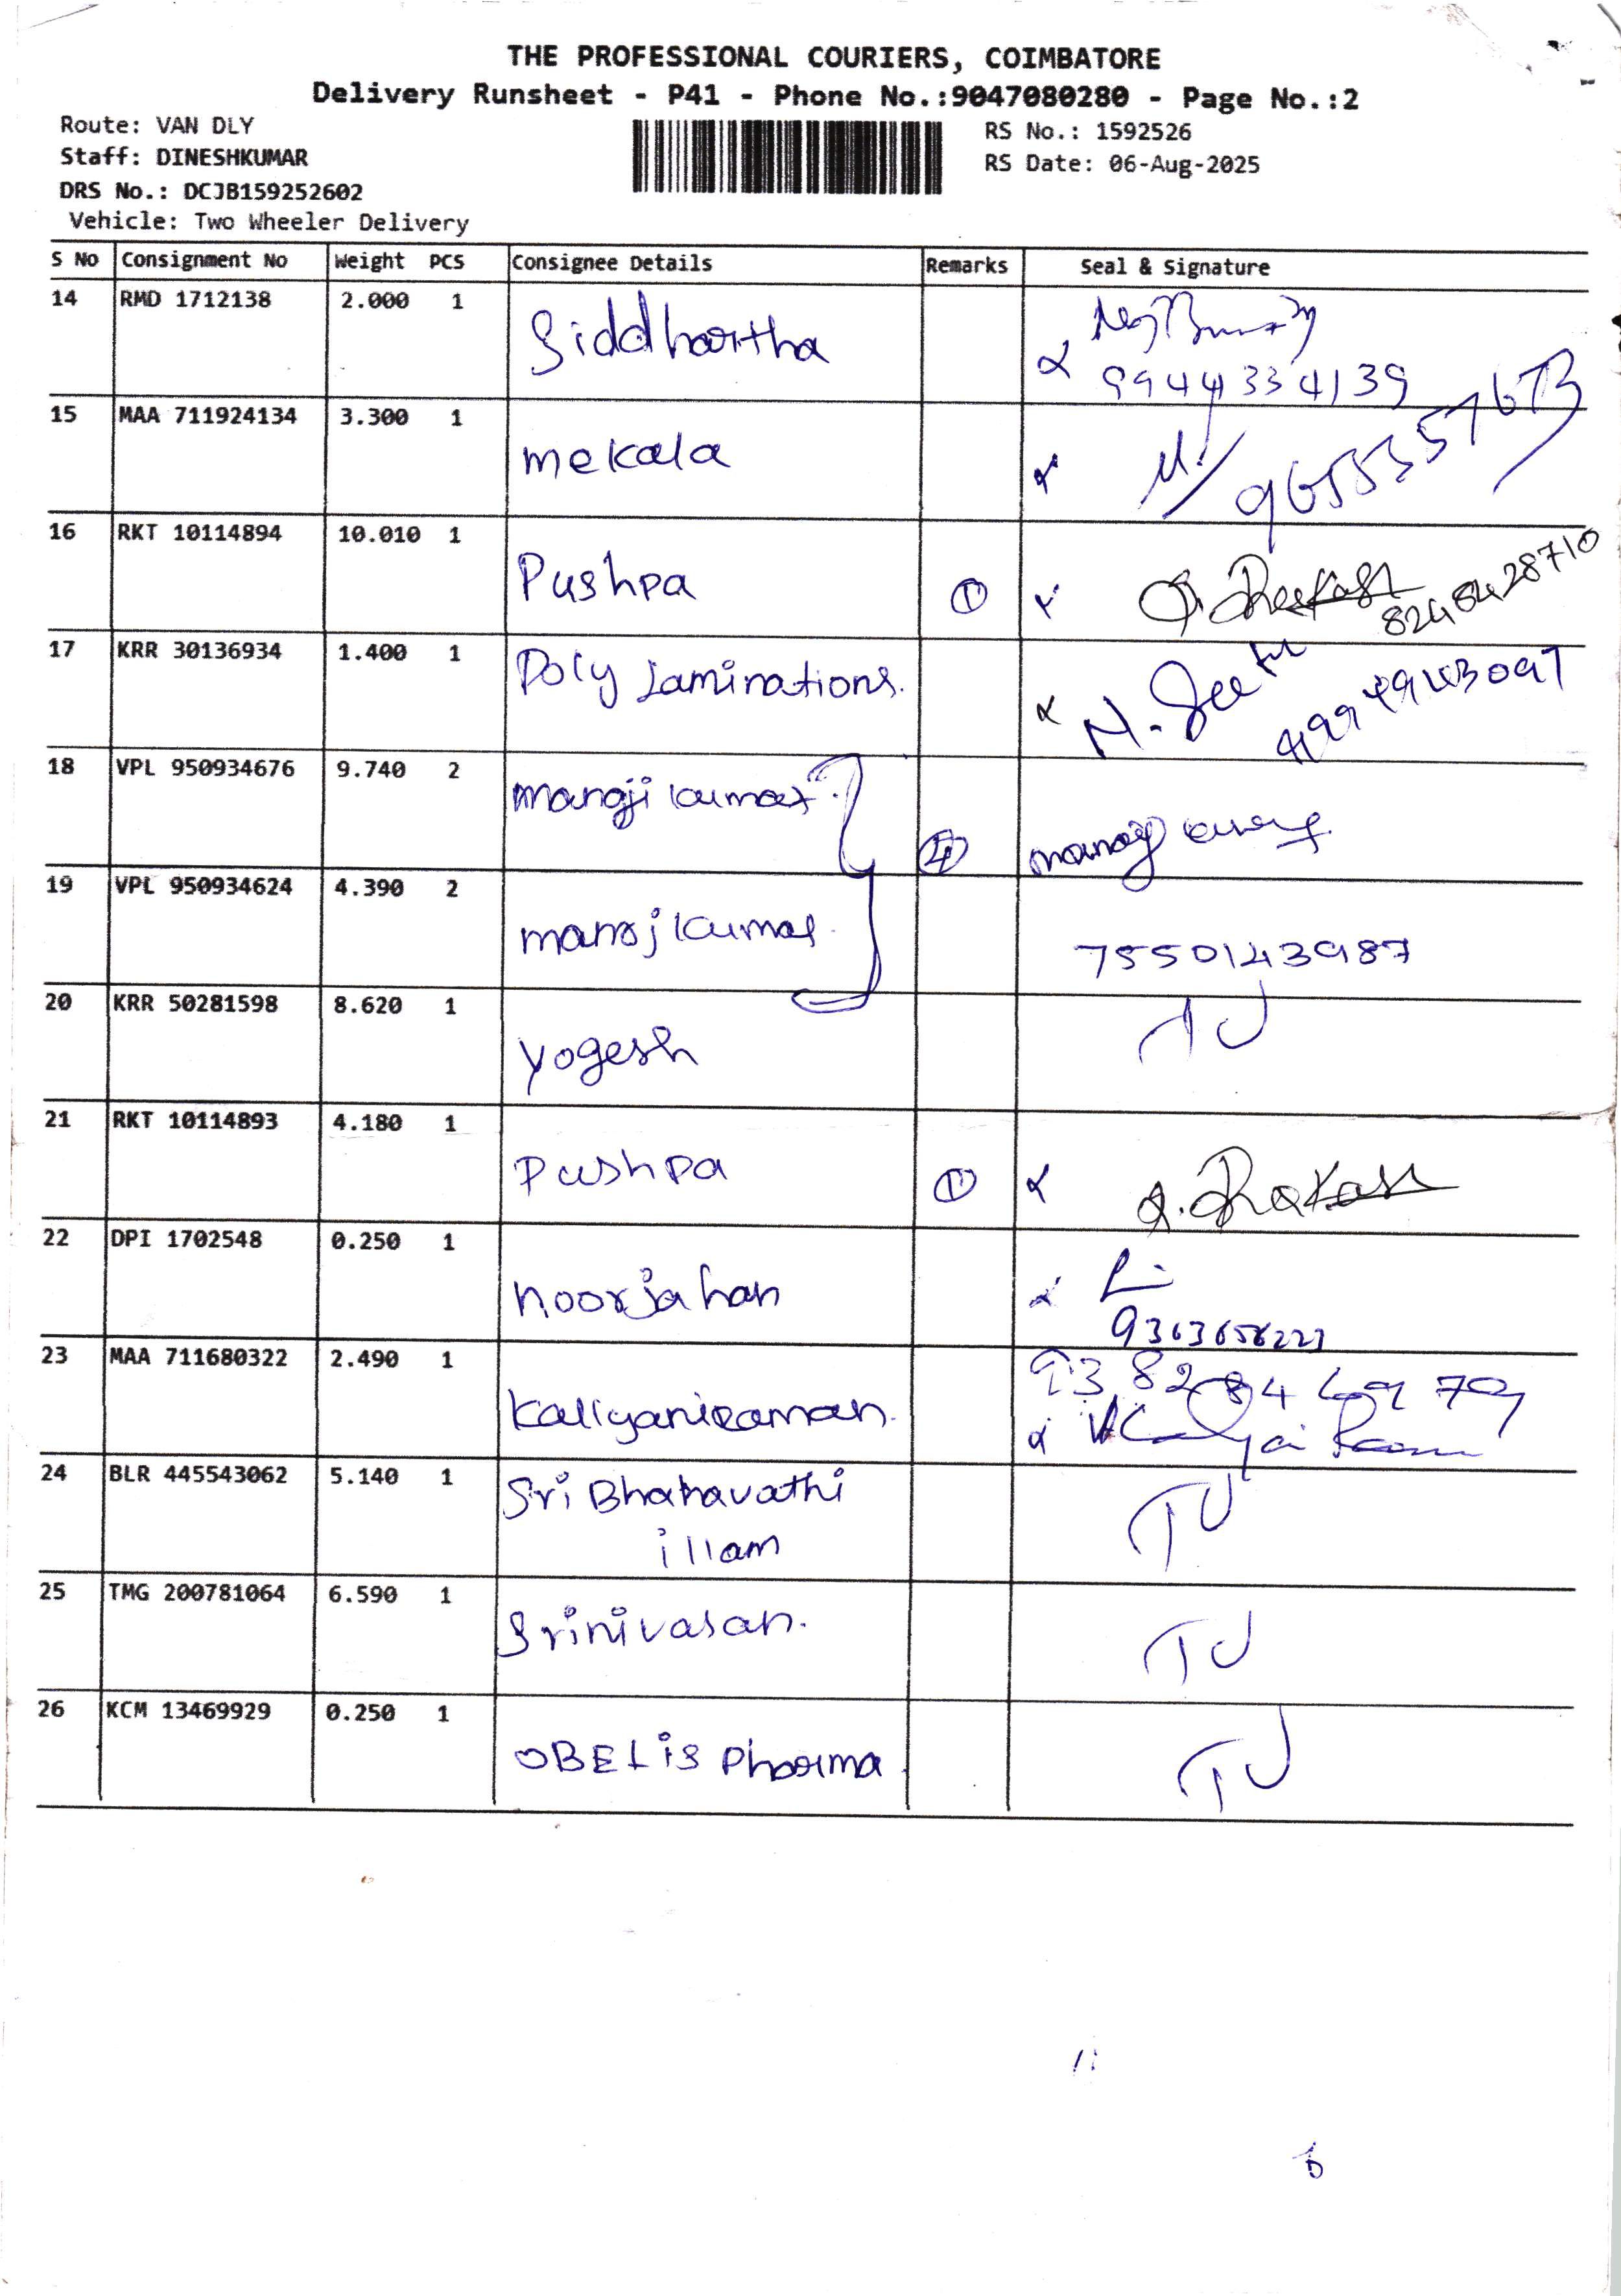 THE PROFESSIONAL COURIERS, COIMBATORE
Delivery Runsheet - P41 - Phone No.:9047080280 - Page No.:2
Route: VAN DLY
RS No.: 1592526
Staff: DINESHKUMAR
RS Date: 06-Aug-2025
DRS No.: DCJB159252602
Vehicle: Two Wheeler Delivery
S No Consignment No Weight PCS Consignee Details Remarks Seal & Signature
14 RMD 1712138 2.000 1 Siddhartha
9944334139
15 MAA 711924134 3.300 1 mekala
16 RKT 10114894 10.010 1 Pushpa 1
8248428710
17 KRR 30136934 1.400 1 Poly Laminations.
18 VPL 950934676 9.740 2 manoji kumar 4 manoj
19 VPL 950934624 4.390 2 manoj kumar
7550143987
20 KRR 50281598 8.620 1 yogesh TU
21 RKT 10114893 4.180 1 Pushpa 1
22 DPI 1702548 0.250 1 noorjahan
23 MAA 711680322 2.490 1 Kaliyaniraman.
24 BLR 445543062 5.140 1 Sri Bhahavathi TU
illam
25 TMG 200781064 6.590 1 Srinivasan. TU
26 KCM 13469929 0.250 1 OBELIS Pharma TU